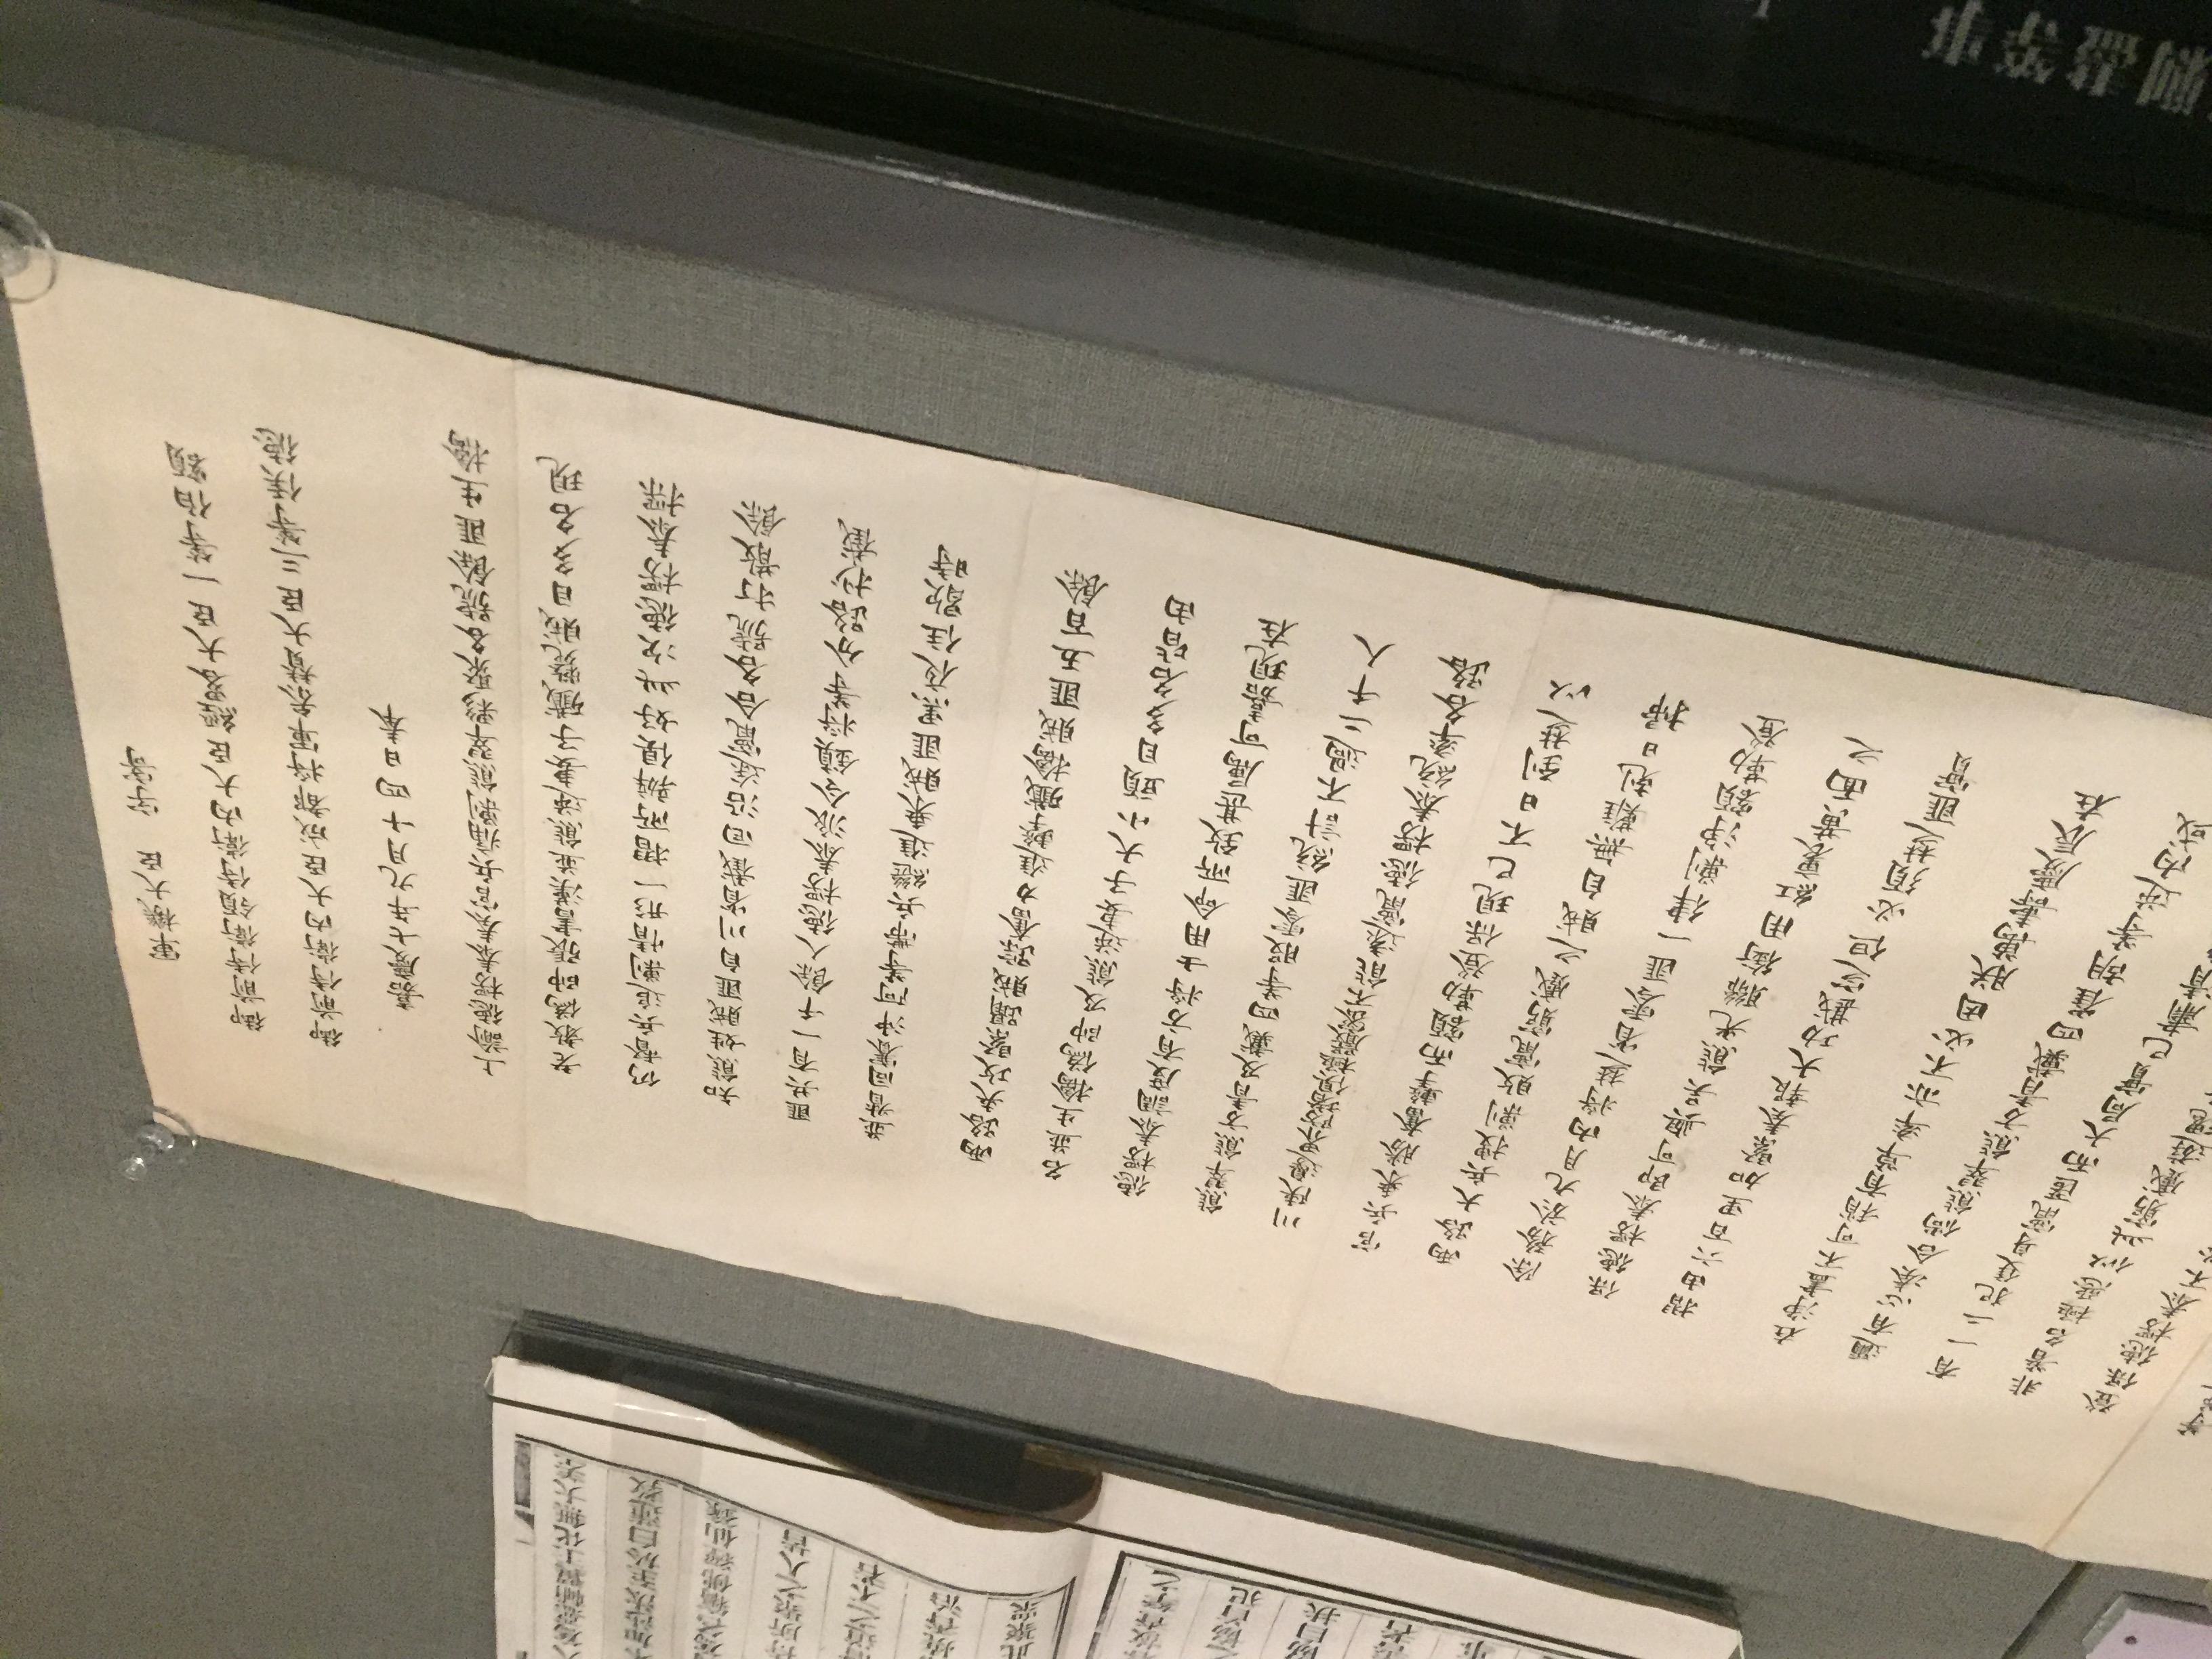 軍機大臣　字寄
御前侍衛領侍衛內大臣經畧大臣一等伯額
御前侍衛內大臣成都將軍叅贊大臣三等侯德
嘉慶七年九月十四日奉
上諭德楞泰奏官兵痛剿熊翠夥聚各號餘匪生擒
老教偽帥張書漢並熊逆妻子殲斃賊目多名現
仍督兵追剿情形一摺所辦俱好此次德楞泰探
知熊姓賊匪自川省截回沿途竄合各號打散餘
匪共有一千餘人德楞泰派令鎮將等分路抄截
並暗同賽沖阿等帶兵繼進乘賊匪黑夜住歇時
兩路夾攻緊躡賊踪奮力進擊殲擒賊匪五百餘
名並生擒偽帥及熊逆妻子大小頭目多名皆由
德楞泰調度有方將士用命所致甚属可嘉現在
熊翠熊方青及戴四等股零匪統計不過二千人
川陝邊界防堵俱極嚴密不能遠竄德楞泰統率各路
官兵乘勝奮擊而額勒登保現已不日到楚以
兩路大兵搜剿敗竄窮蹙之賊自無難剋日掃
除務於九月內將楚省零匪一律剿淨額勒登
保德楞泰即可與吳熊光聯銜用紅裏黃面之
摺由六百里加緊奏報大功戡定但必須楚匪實
在淨盡不可稍有草率亦不必因朕萬壽慶辰在
邇有心湊合倘熊翠熊方青戴四崔胡等逆內或
有一二犯隻身竄匿而大局實已肅清
非著名極惡似此窮蹙遊魂
登保德楞泰不必
等
人為惡
未加沙汰至於白蓮教
為名竊佛經仙籙
所聚之人苦
道之不若
燒香治
此聚衆
故者拏之
之協首犯
協自扶
害者
事
剿盡等事